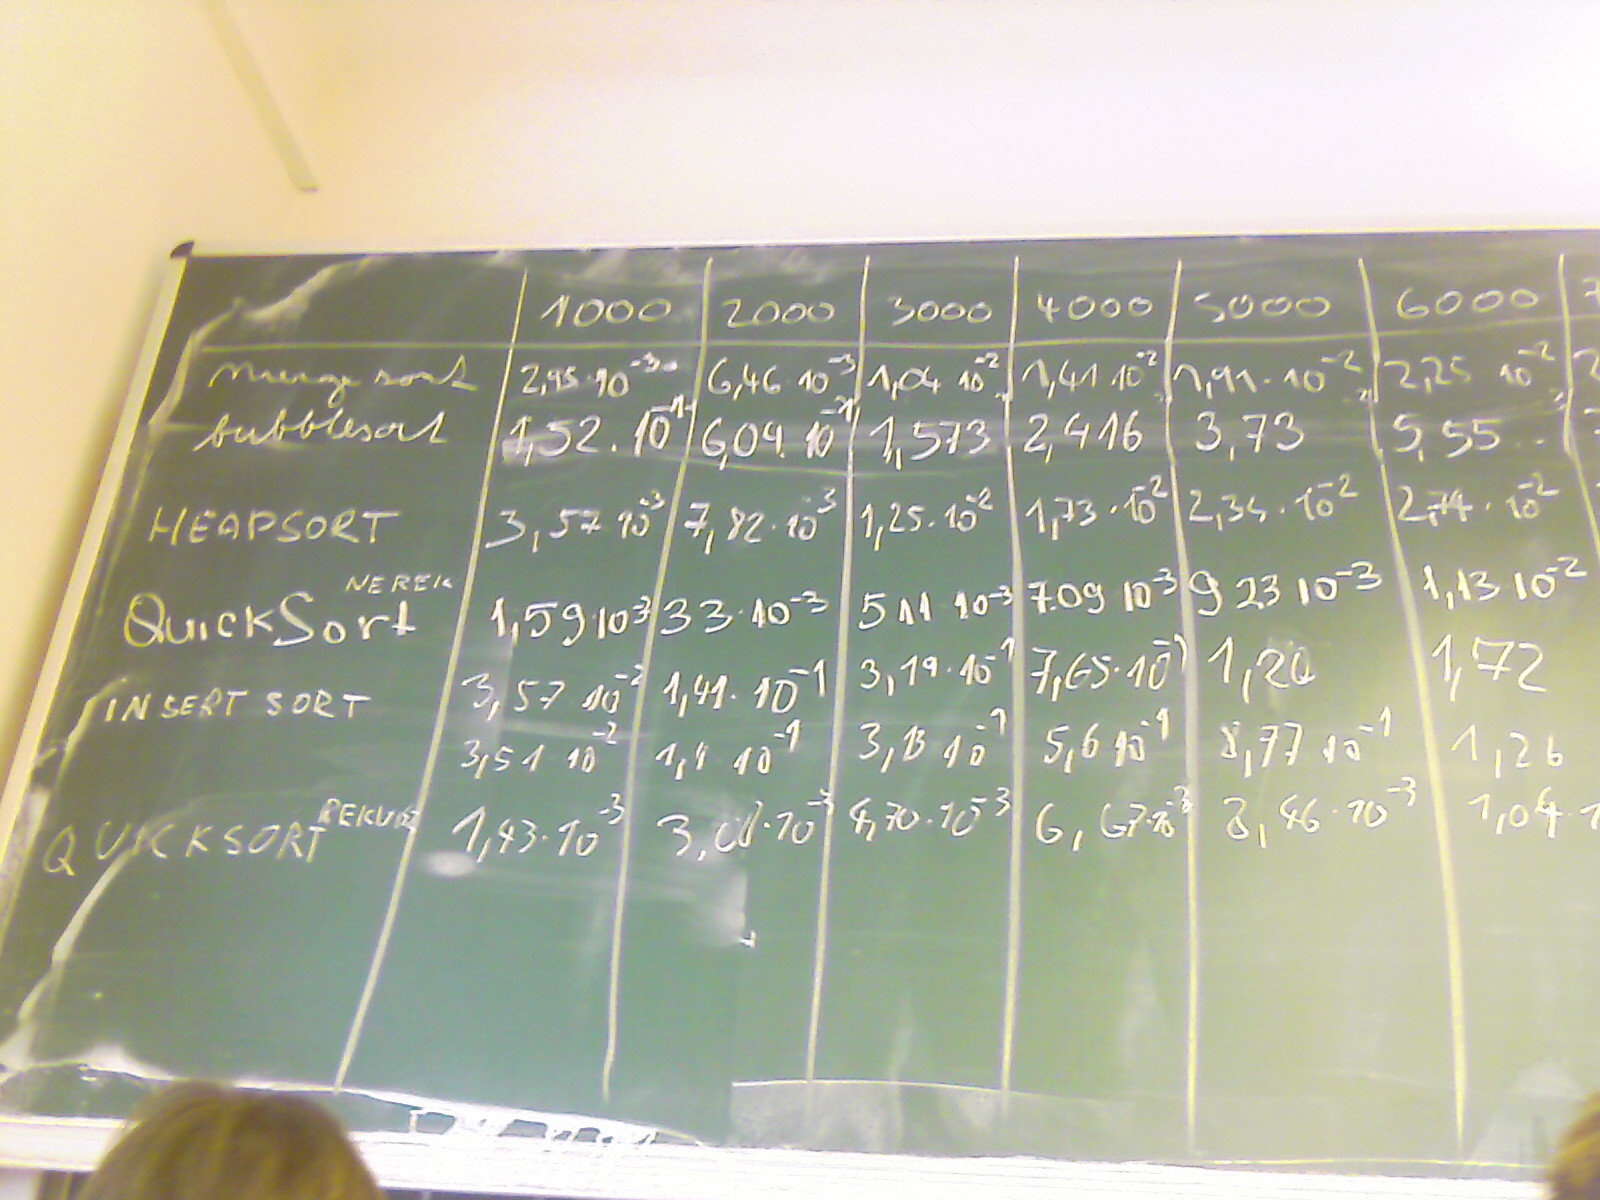 1000 2000 3000 4000 5000 6000
merge sort 2,95·10⁻³ 6,46·10⁻³ 1,04 10⁻² 1,41 10⁻² 1,91·10⁻² 2,25 10⁻²
bubblesort 1,52·10⁻¹ 6,04·10⁻¹ 1,573 2,416 3,73 5,55..
HEAPSORT 3,57·10⁻³ 7,82·10⁻³ 1,25·10⁻² 1,73·10⁻² 2,34·10⁻² 2,74·10⁻²
QuickSort NEREK 1,59 10⁻³ 33·10⁻³ 511 10⁻³ 7.09 10⁻³ 9 23 10⁻³ 1,13 10⁻²
INSERT SORT 3,57 10⁻² 1,41·10⁻¹ 3,19·10⁻¹ 7,65·10⁻¹ 1,20 1,72
3,51 10⁻² 1,4 10⁻¹ 3,13 10⁻¹ 5,6 10⁻¹ 8,77 10⁻¹ 1,26
QUICKSORT 1,43·10⁻³ 4,70·10⁻³ 6,67·10⁻³ 8,46·10⁻³ 1,04·1